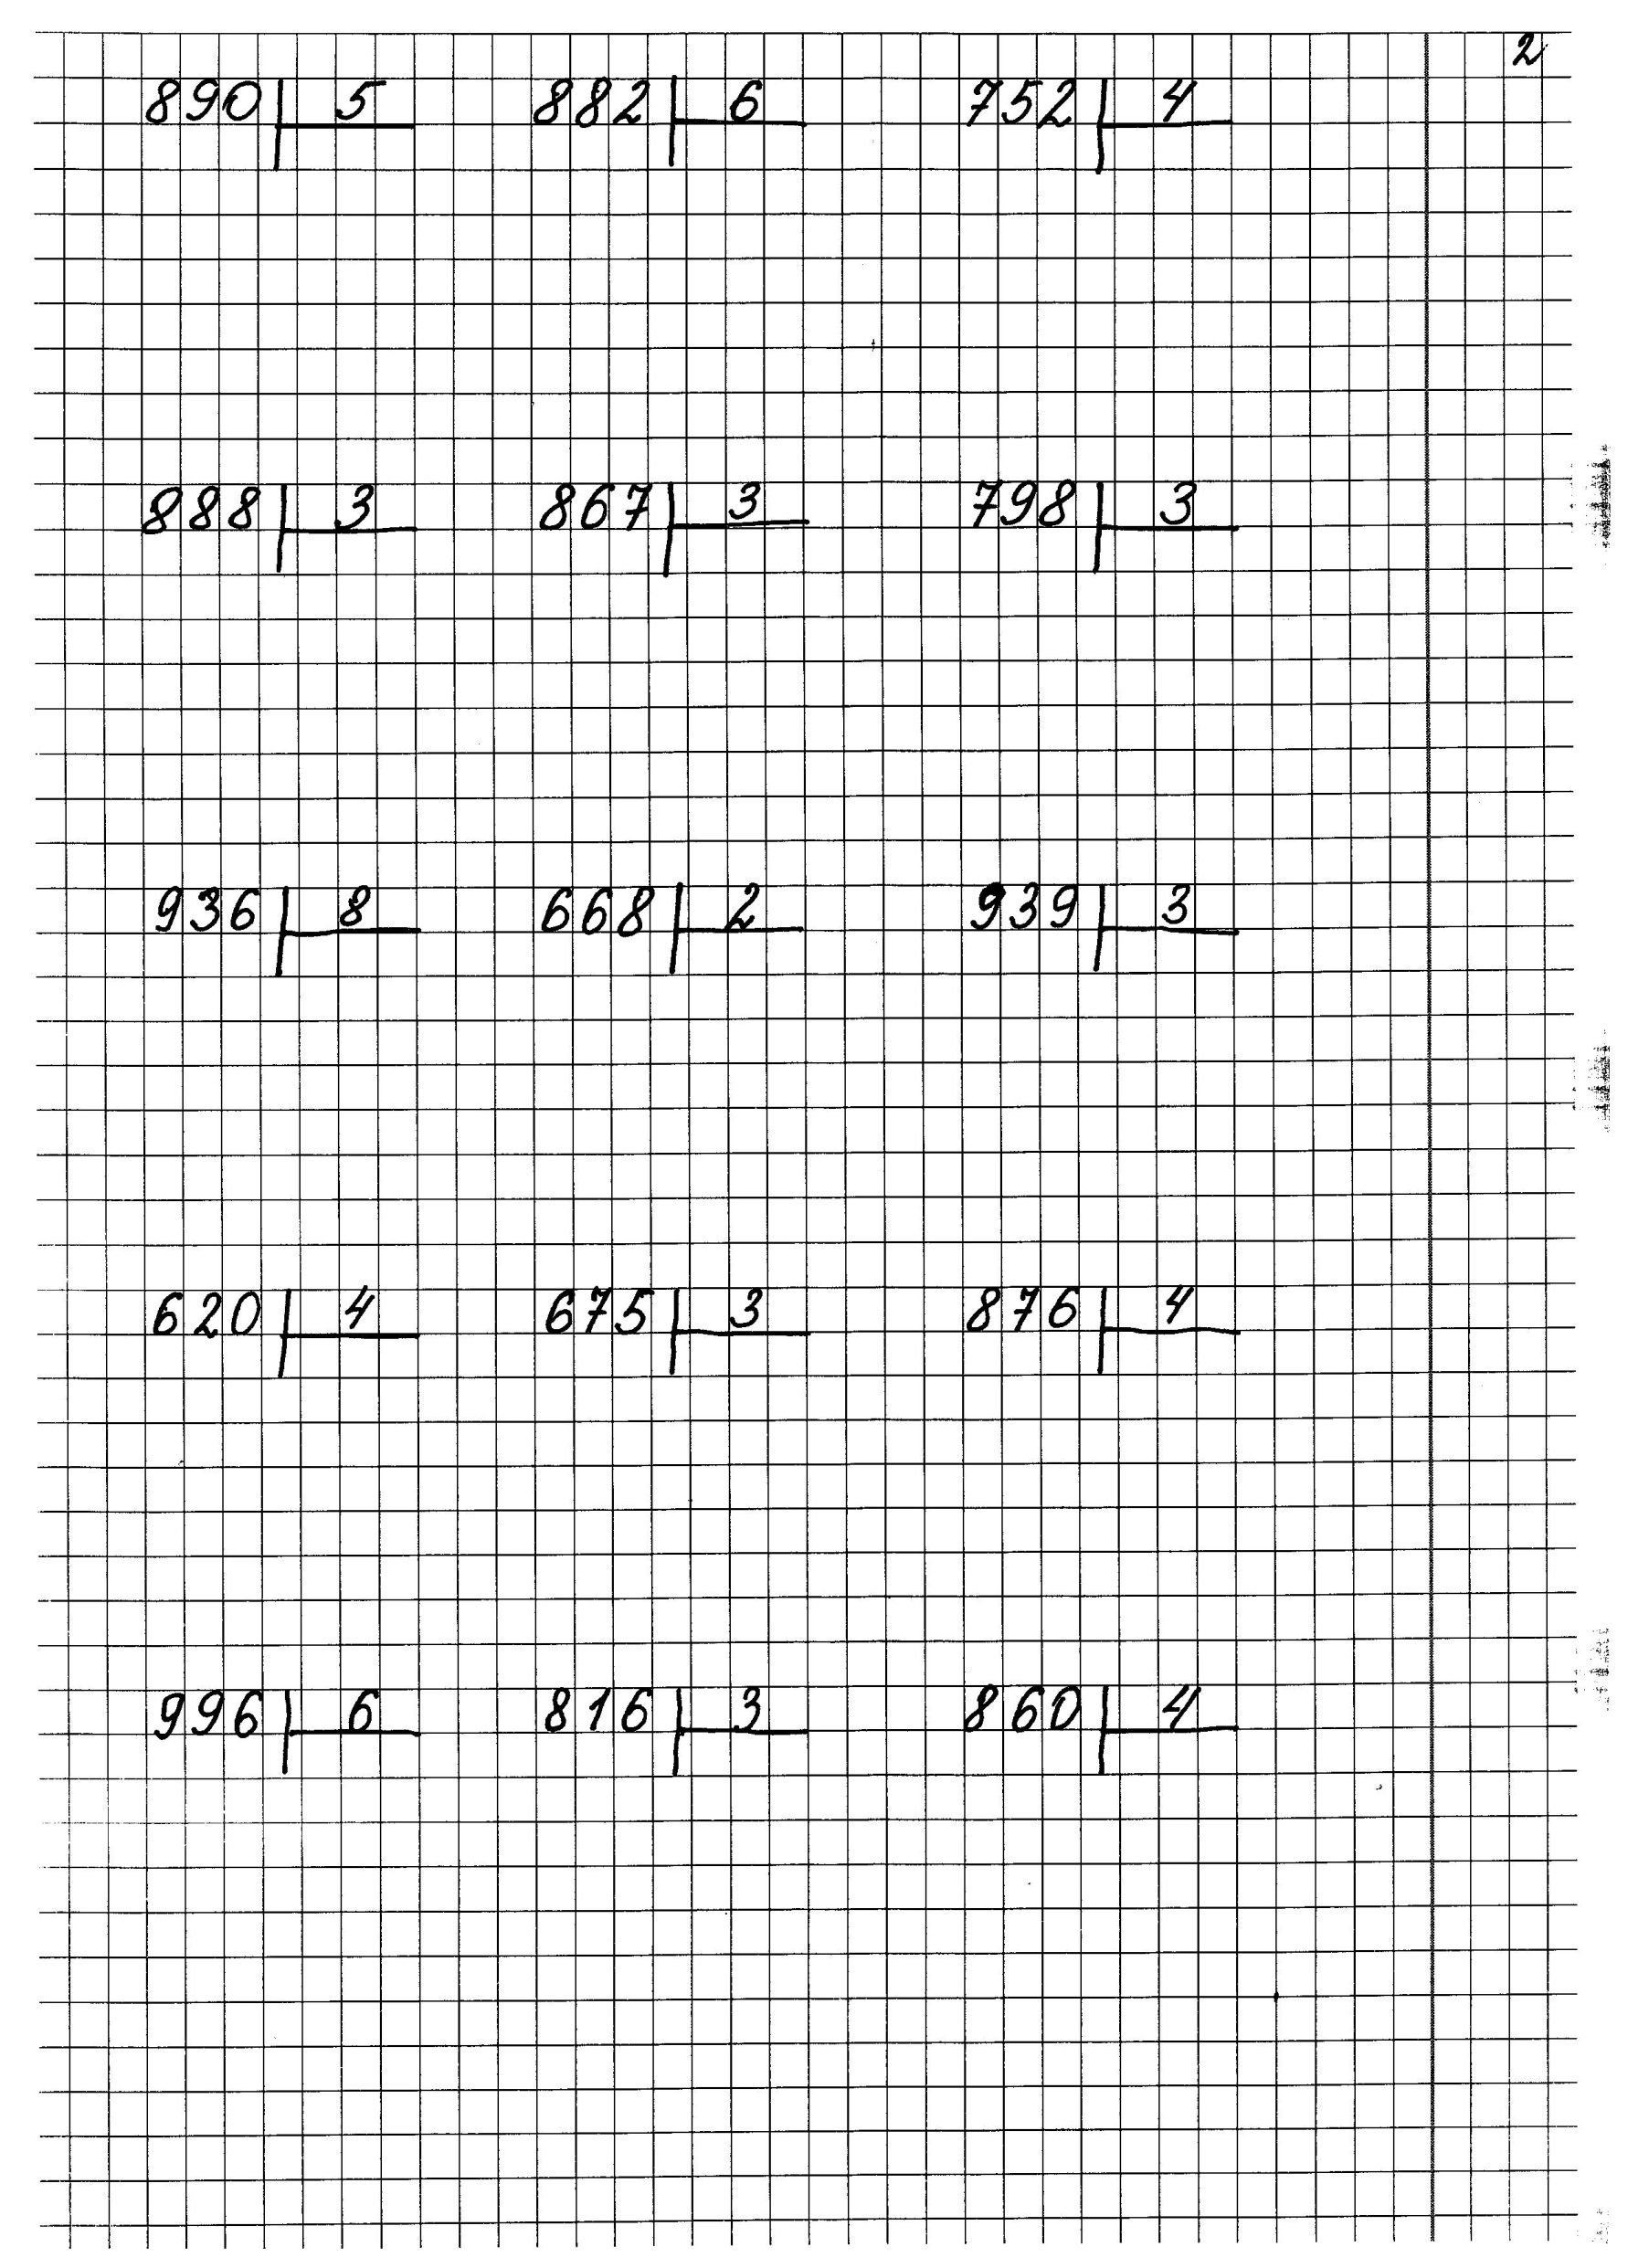 2
890 5 882 6 752 4
888 3 867 3 798 3
936 8 668 2 939 3
620 4 675 3 876 4
996 6 816 3 860 4